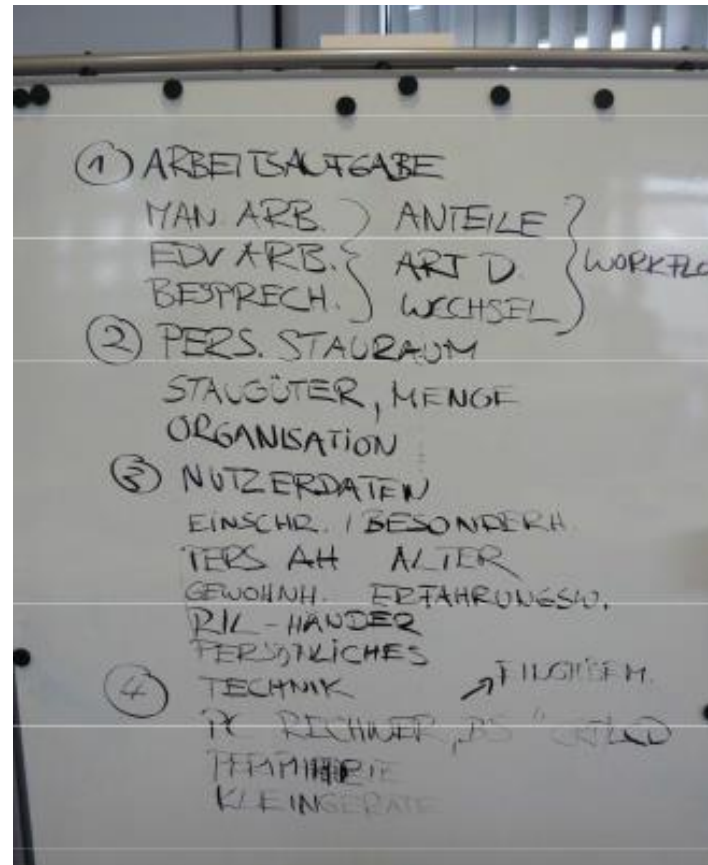 ① ARBEITSAUFGABE
MAN. ARB. } ANTEILE }
EDV ARB. } ART D. } WORKFLO
BESPRECH. } WECHSEL }
② PERS. STAURAUM
STAUGÜTER, MENGE
ORGANISATION
③ NUTZERDATEN
EINSCHR. / BESONDERH.
ALTER
GEWOHNH. ERFAHRUNGSW.
R/L-HÄNDER
PERSÖNLICHES
④ TECHNIK
PC RECHNER, BS
KLEINGERÄTE